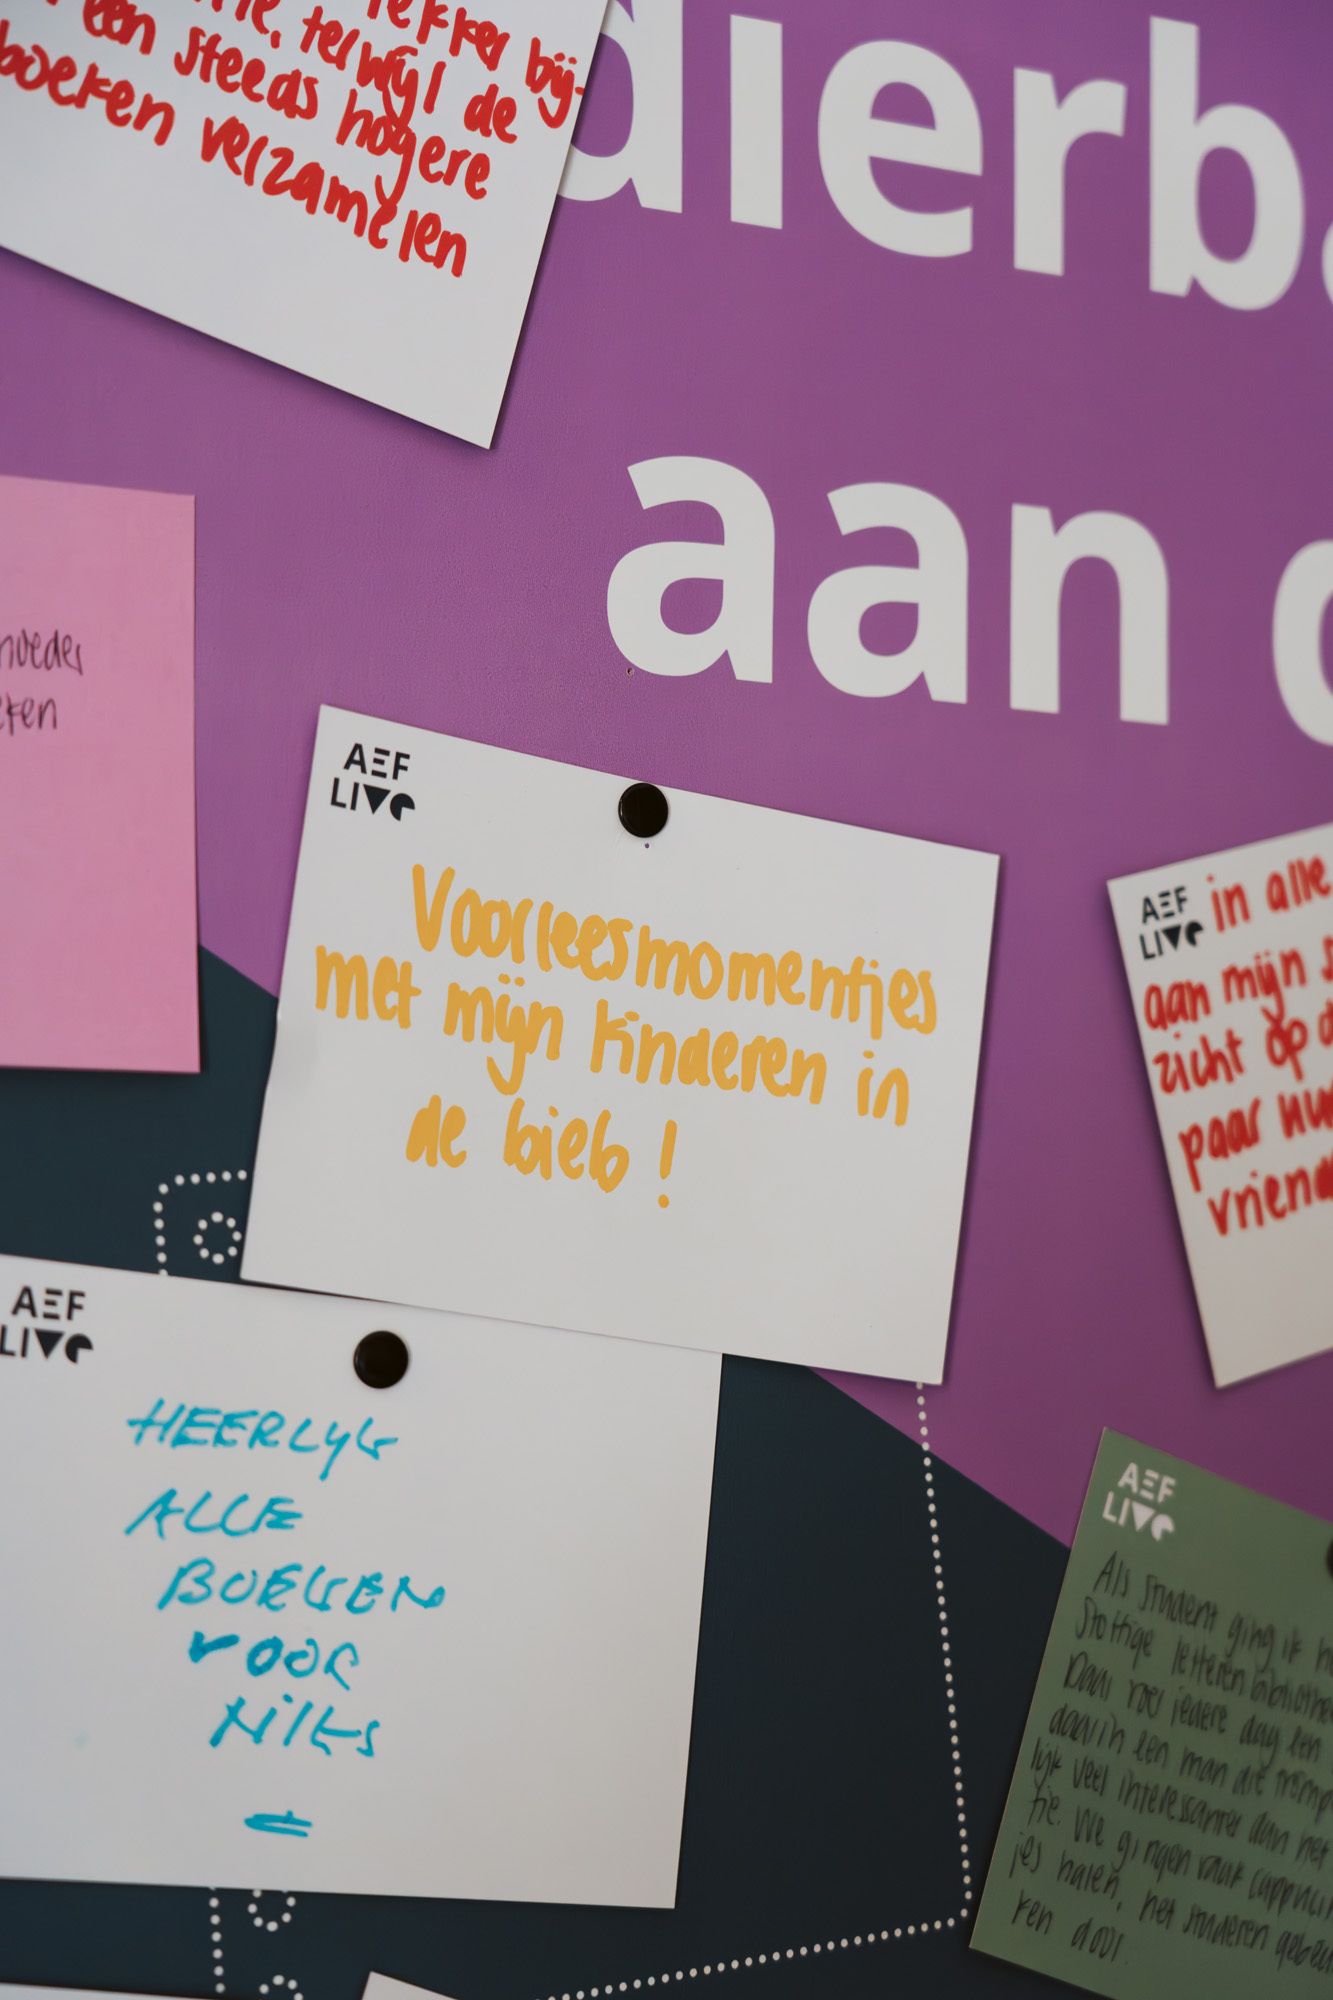 lekker bij-
terwijl de
een steeds hogere
boeken verzamelen
dierba
aan
AEF
LIVE
Voorleesmomentjes
met mijn kinderen in
de bieb!
AEF
LIVE
in alle
aan mijn s
zicht op d
paar
vriend
AEF
LIVE
HEERLYK
ALLE
BOEKEN
VOOR
NIKS
AEF
LIVE
Als student ging ik
stoffige letterenbibliothe
Daar iedere dag een
daarin een man die
lijk veel interessanter dan het
tie. We gingen vaak cappucin
jes halen, het studeren gebeur
ken door.